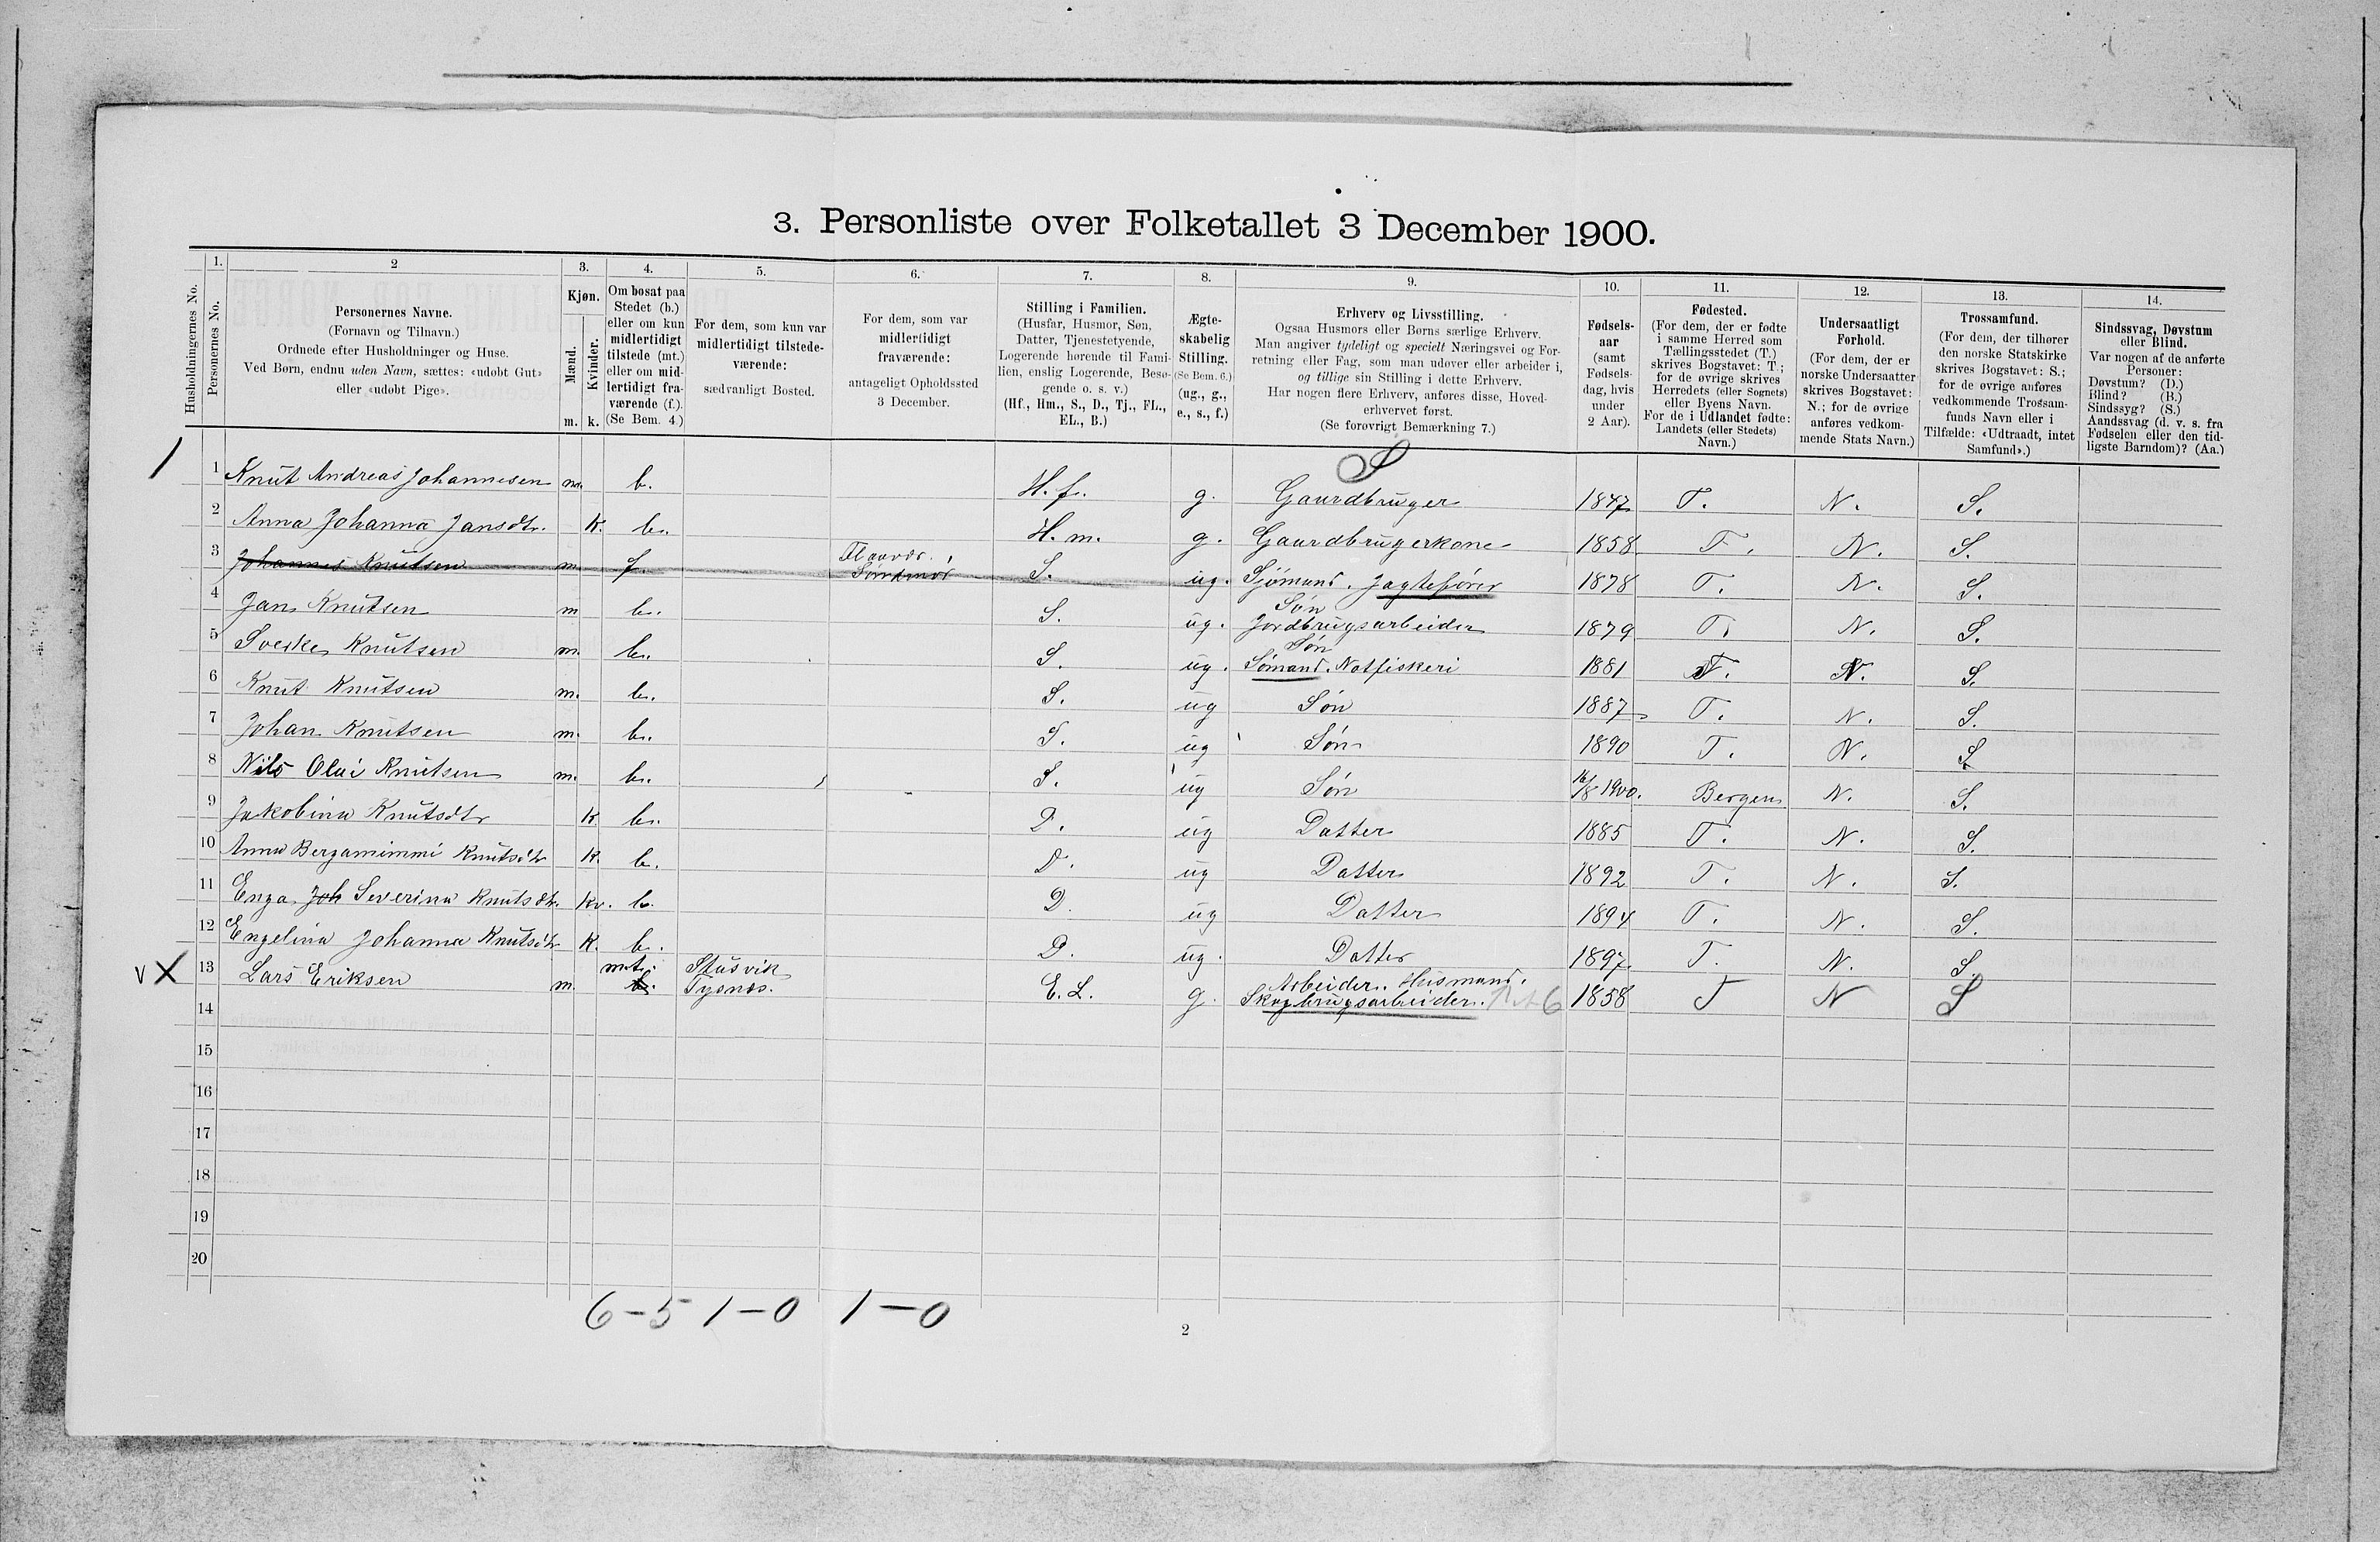 3. Personliste over Folketallet 3 December 1900.
1. 2 3. 4. 5. 6. 7. 8. 9. 10. 11. 12. 13. 14.
Husholdningernes No.
Personernes No.
Personernes Navne.
(Fornavn og Tilnavn.)
Ordnede efter Husholdninger og Huse.
Ved Børn, endnu uden Navn, sættes: «udøbt Gut»
eller «udøbt Pige».
Kjøn.
Mænd.
Kvinder.
m. k.
Om bosat paa
Stedet (b.)
eller om kun
midlertidigt
tilstede (mt.)
eller om mid-
lertidigt fra-
værende (f.).
(Se Bem. 4.)
For dem, som kun var
midlertidigt tilstede-
værende:
sædvanligt Bosted.
For dem, som var
midlertidigt
fraværende:
antageligt Opholdssted
3 December.
Stilling i Familien.
(Husfar, Husmor, Søn,
Datter, Tjenestetyende,
Logerende hørende til Fami-
lien, enslig Logerende, Besø-
gende o. s. v.)
(Hf., Hm., S., D., Tj., FL.,
EL., B.)
Ægte-
skabelig
Stilling.
(Se Bem. 6.)
(ug., g.,
e., s., f.)
Erhverv og Livsstilling.
Ogsaa Husmors eller Børns særlige Erhverv.
Man angiver tydeligt og specielt Næringsvei og For-
retning eller Fag, som man udøver eller arbeider i,
og tillige sin Stilling i dette Erhverv.
Har nogen flere Erhverv, anføres disse, Hoved-
erhvervet først.
(Se forøvrigt Bemærkning 7.)
Fødsels-
aar
(samt
Fødsels-
dag, hvis
under
2 Aar).
Fødested.
(For dem, der er fødte
i samme Herred som
Tællingsstedet (T.)
skrives Bogstavet: T.;
for de øvrige skrives
Herredets (eller Sognets)
eller Byens Navn.
For de i Udlandet fødte:
Landets (eller Stedets)
Navn.)
Undersaatligt
Forhold.
(For dem, der er
norske Undersaatter
skrives Bogstavet:
N.; for de øvrige
anføres vedkom-
mende Stats Navn.)
Trossamfund.
(For dem, der tilhører
den norske Statskirke
skrives Bogstavet: S.;
for de øvrige anføres
vedkommende Trossam-
funds Navn eller i
Tilfælde: «Udtraadt, intet
Samfund».)
Sindssvag, Døvstum
eller Blind.
Var nogen af de anførte
Personer:
Døvstum? (D.)
Blind? (B.)
Sindssyg? (S.)
Aandssvag (d. v. s. fra
Fødselen eller den tid-
ligste Barndom)? (Aa.)
S
1 1 Knut Andreas Johannesen m. b. H. f. g. Gaardbruger 1847 T. N. S.
2 Anna Johanna Jansdtr. k. b. H. m. g. Gaardbrugerkone 1858 T. N. S.
3 Johannes Knutsen m. f. Søndmør S. ug. Sjømand. Jagtefører 1878 T. N. S.
Søn
4 Jan Knutsen m b. S. ug. Jordbrugsarbeider 1879 T. N. S.
Søn
5 Knutsen m. b. S. ug. Sømand. Notfiskeri 1881 T. N. S.
6 Knut Knutsen m. b. S. ug Søn 1887 T. N. S.
7 Johan Knutsen m. b. S. ug Søn 1890 T. N. S
8 Nils Olai Knutsen m. b. S. ug Søn 16/8 1900. Bergen N. S.
9 Jakobina Knutsdtr k b. D. ug Datter 1885 T. N. S.
10 Anna Bergamimmi Knutsdtr k. b. D. ug Datter 1892 T. N. S.
11 Enga Joh Severina Knutsdtr. kv. b. D. ug Datter 1894 T. N. S.
12 Engelina Johanna Knutsdtr k. b. D. ug. Datter 1897. T. N. S.
mt. Stusvik Arbeider. Husmand.
v X 13 Lars Eriksen m. b. Tysnes. E. L. g. Skogbrugsarbeider. 6 1858 T N S
14
15
16
17
18
19
20
6-5 1-0 1-0
2